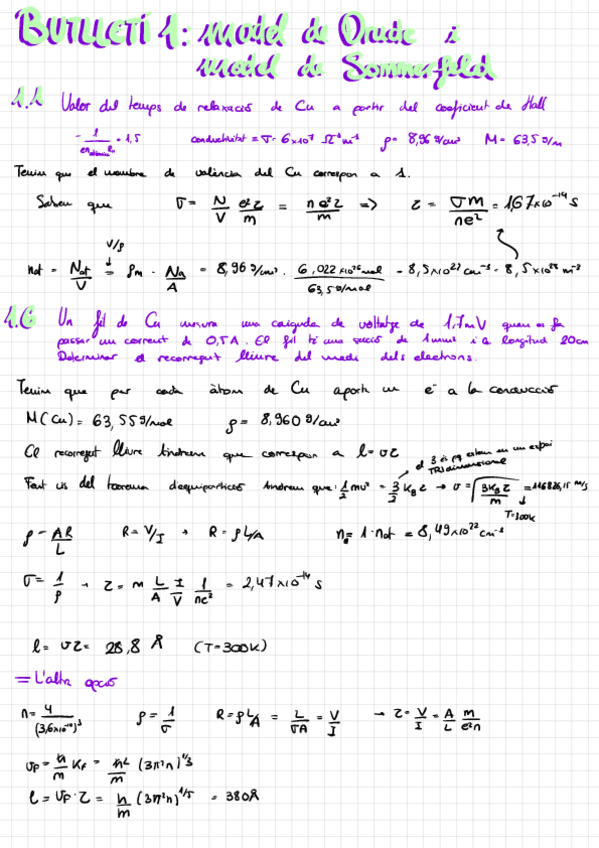 BUTLLETÍ 1: model de Drude i
model de Sommerfeld
1.1 Valor del temps de relaxació de Cu a partir del coeficient de Hall
conductivitat = σ = 6×10⁷ Ω⁻¹m⁻¹ ρ = 8,96 g/cm³ M = 63,5 g/m
Tenim que el nombre de valència del Cu correspon a 1.
Sabem que σ = N/V e²τ/m = ne²τ/m => τ = σm/ne² = 1,67×10⁻¹⁴ s
V/ρ
1.6 Un fil de Cu mesura una caiguda de voltatge de 1,7mV quan es fa
passar un corrent de 0,5A. El fil té una secció de 1mm² i a longitud 20cm
Determinar el recorregut lliure del medi dels electrons.
Tenim que per cada àtom de Cu aporta un e⁻ a la conducció
M(Cu) = 63,55 g/mol ρ = 8,960 g/cm³
El recorregut lliure tindrem que correspon a l = vτ
tridimensional
Fent ús del teorema d'equipartició tindrem que: 1/2 mv² = 3/2 K_B τ → v = √(3K_B τ/m)
T=300K
ρ = AR/L R = V/I → R = ρL/A n_e = 1·nat = 8,49×10²² cm⁻³
σ = 1/ρ → τ = m L/A I/V 1/ne² = 2,47×10⁻¹⁴ s
l = vτ = 28,8 Å (T=300K)
= L'altra opció
n = 4/(3,6×10⁻¹⁰)³ ρ = 1/σ R = ρL/A = L/σA = V/I → τ = V/I = A/L m/e²n
v_F = ħ/m K_F = ħ/m (3π²n)^1/3
l = v_F·τ = ħ/m (3π²n)^1/3 = 380Å